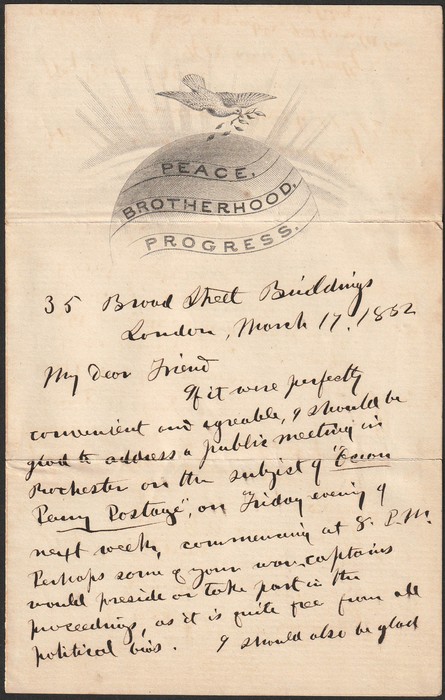 PEACE.
BROTHERHOOD.
PROGRESS.
35 Broad Street Buildings
London, March 17, 1852
My dear Friend
If it were perfectly
convenient and agreable, I should be
glad to address a public meeting in
Rochester on the subject of "Ocean
Penny Postage", on Friday evening of
next week, commencing at 8. P.M.
Perhaps some of your war captains
would preside or take part in the
proceedings, as it is quite free from all
political bias. I should also be glad